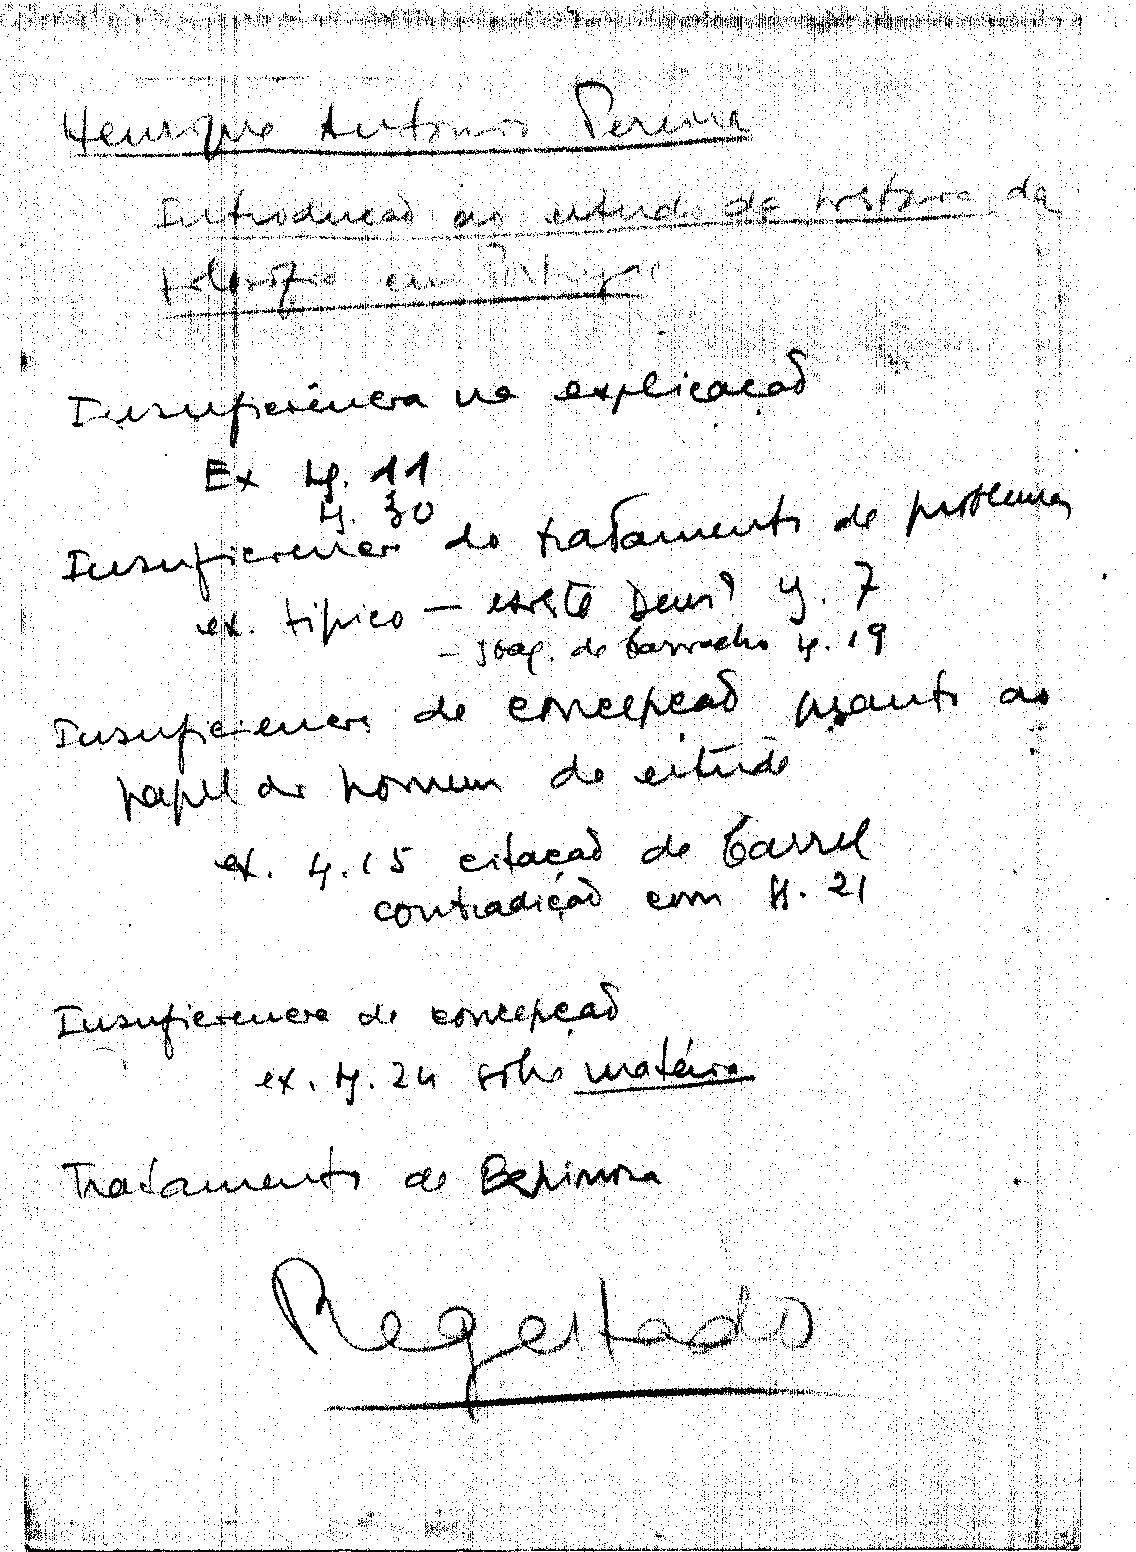 Henrique António Pereira
Introdução ao estudo da história da
filosofia em Portugal
Insuficiência na explicação
Ex pg. 11
pg. 30
Insuficiência do tratamento de problemas
ex. típico — existe Deus? pg. 7
— de Carvalho pg. 19
Insuficiência de concepção quanto ao
papel do homem de estudo
ex. pg. 15 citação de
contradição com pg. 21
Insuficiência de concepção
ex. pg. 24 sobre matéria
Tratamento de Espinosa
Regeitado